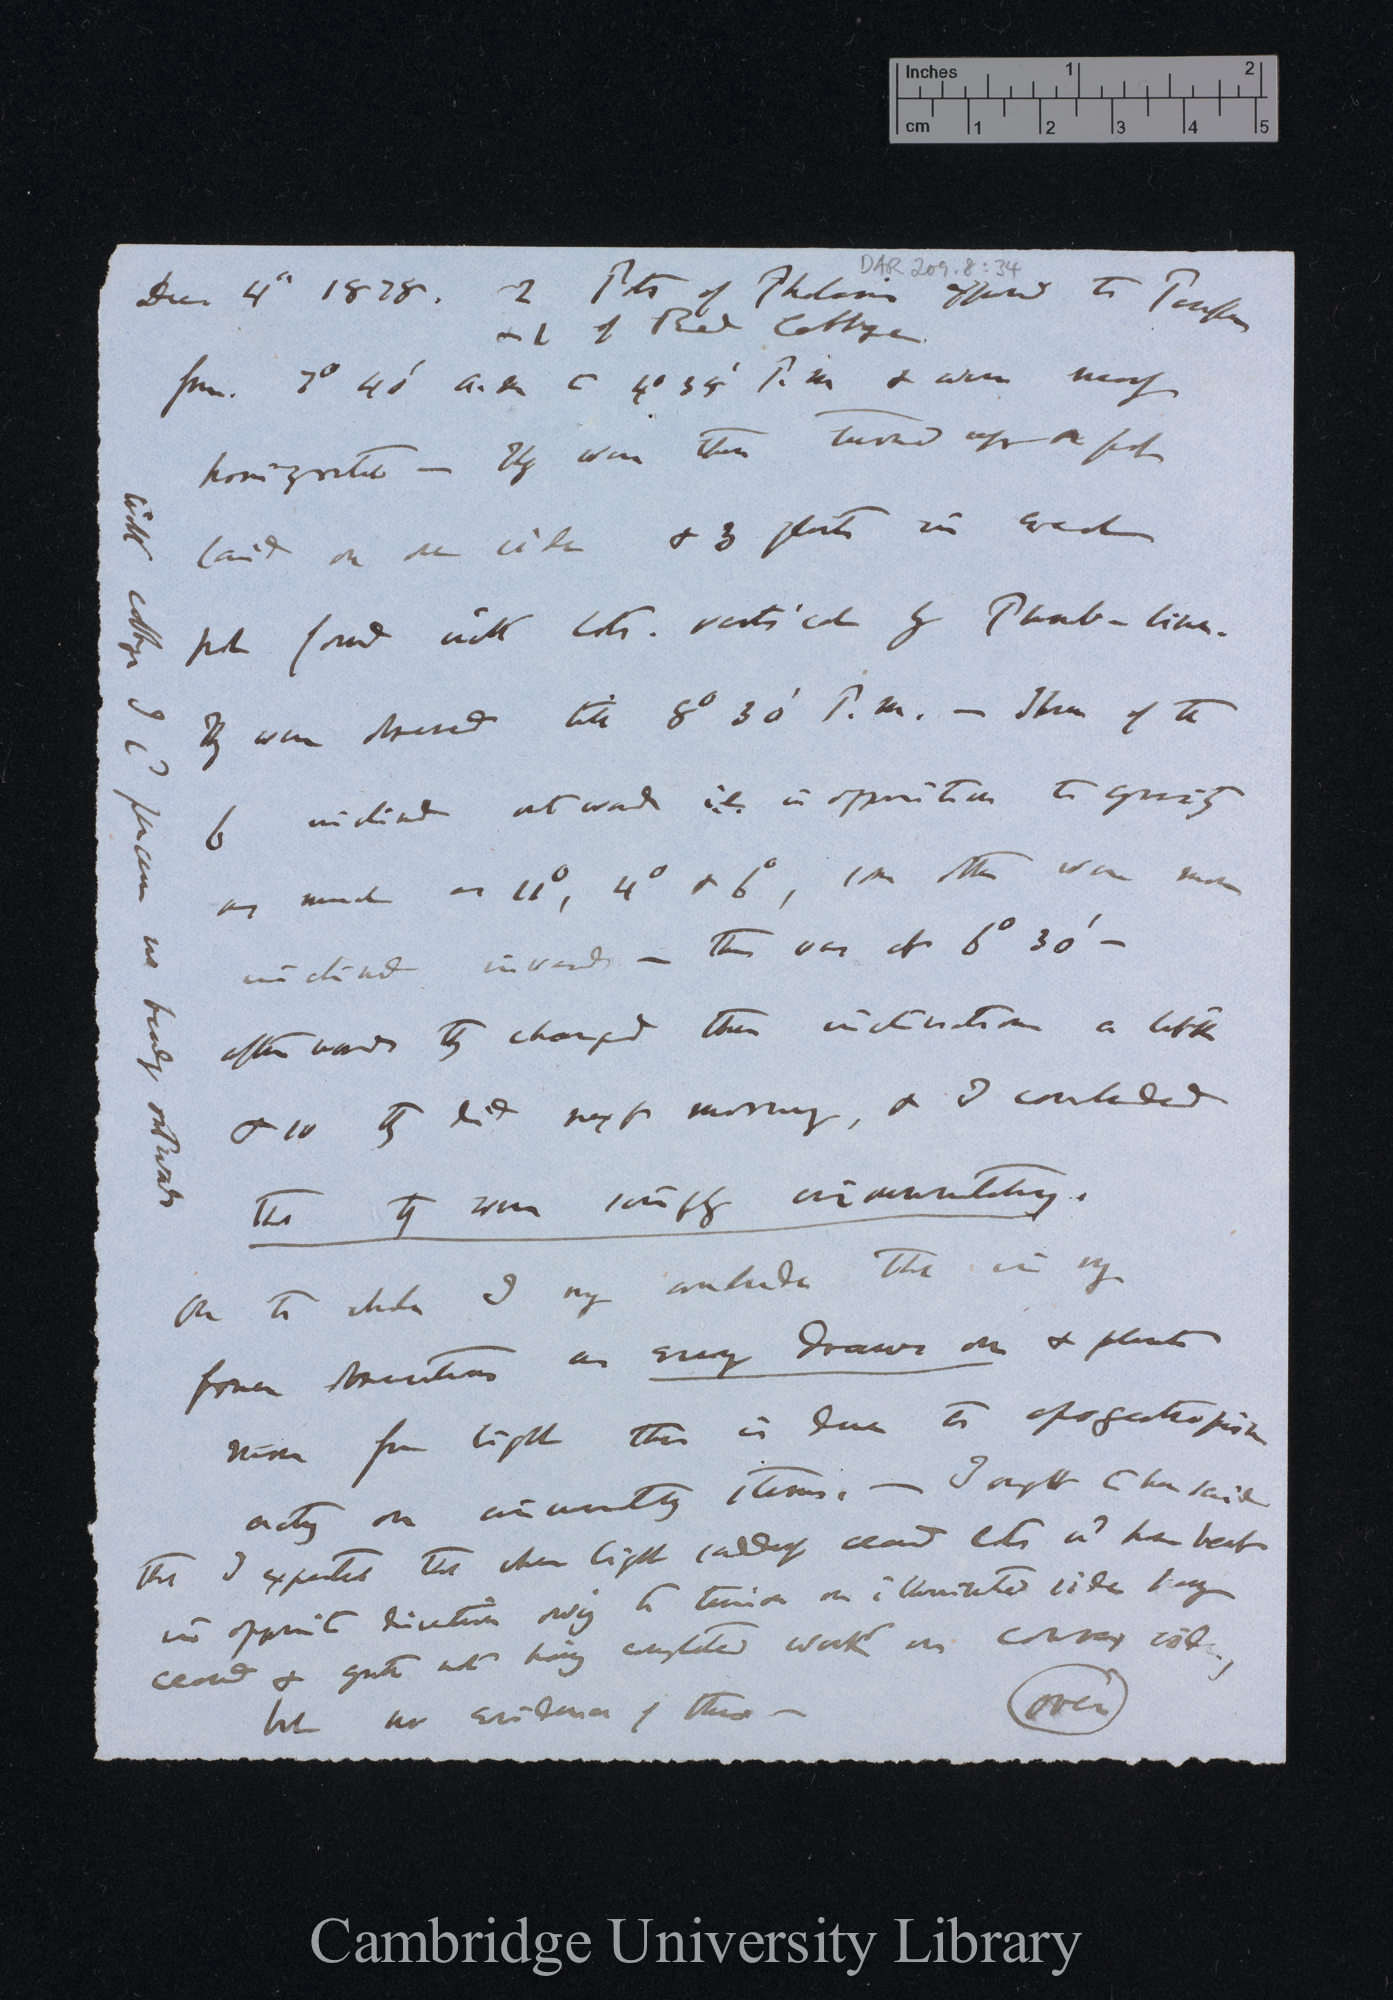 Inches 1 2
cm 1 2 3 4 5
DAR 209.8:34
Dec 4th 1878. 2 Pots of Phalaris exposed to
& 1 of Red Cabbage
from. 7° 40' a.m to 4° 35' P.m & were nearly
horizontal — They were then turned up & a pot
laid on one side & 3 plants in each
pot found with Cots. vertical by Plumb-line.
They were observed till 8° 30' P.m. — Three of the
6 inclined outwards i.e. in opposition to gravity
as much as 11°, 4° & 6°, some others were more
inclined inwards — this was at 6° 30' —
afterwards they changed their inclination a little
& so they did next morning, & I concluded
that they were simply circumnutating.
On the whole I may conclude that in my
former observations on every Drawn on & plants
raised from light this is due to apogeotropism
acting on circumnutating stems. — I ought to have said
that I expected that when light suddenly ceased Cots wd have bent
in opposite direction owing to tension on illuminated side having
ceased & growth not having completed work on convex side,
but no evidence of this —
(over)
With cabbage I cd perceive no bending outwards
Cambridge University Library